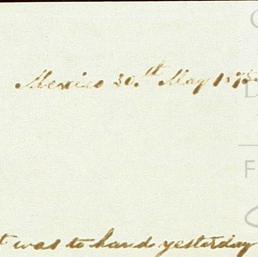 Mexico 30th May
t was to hand yesterday